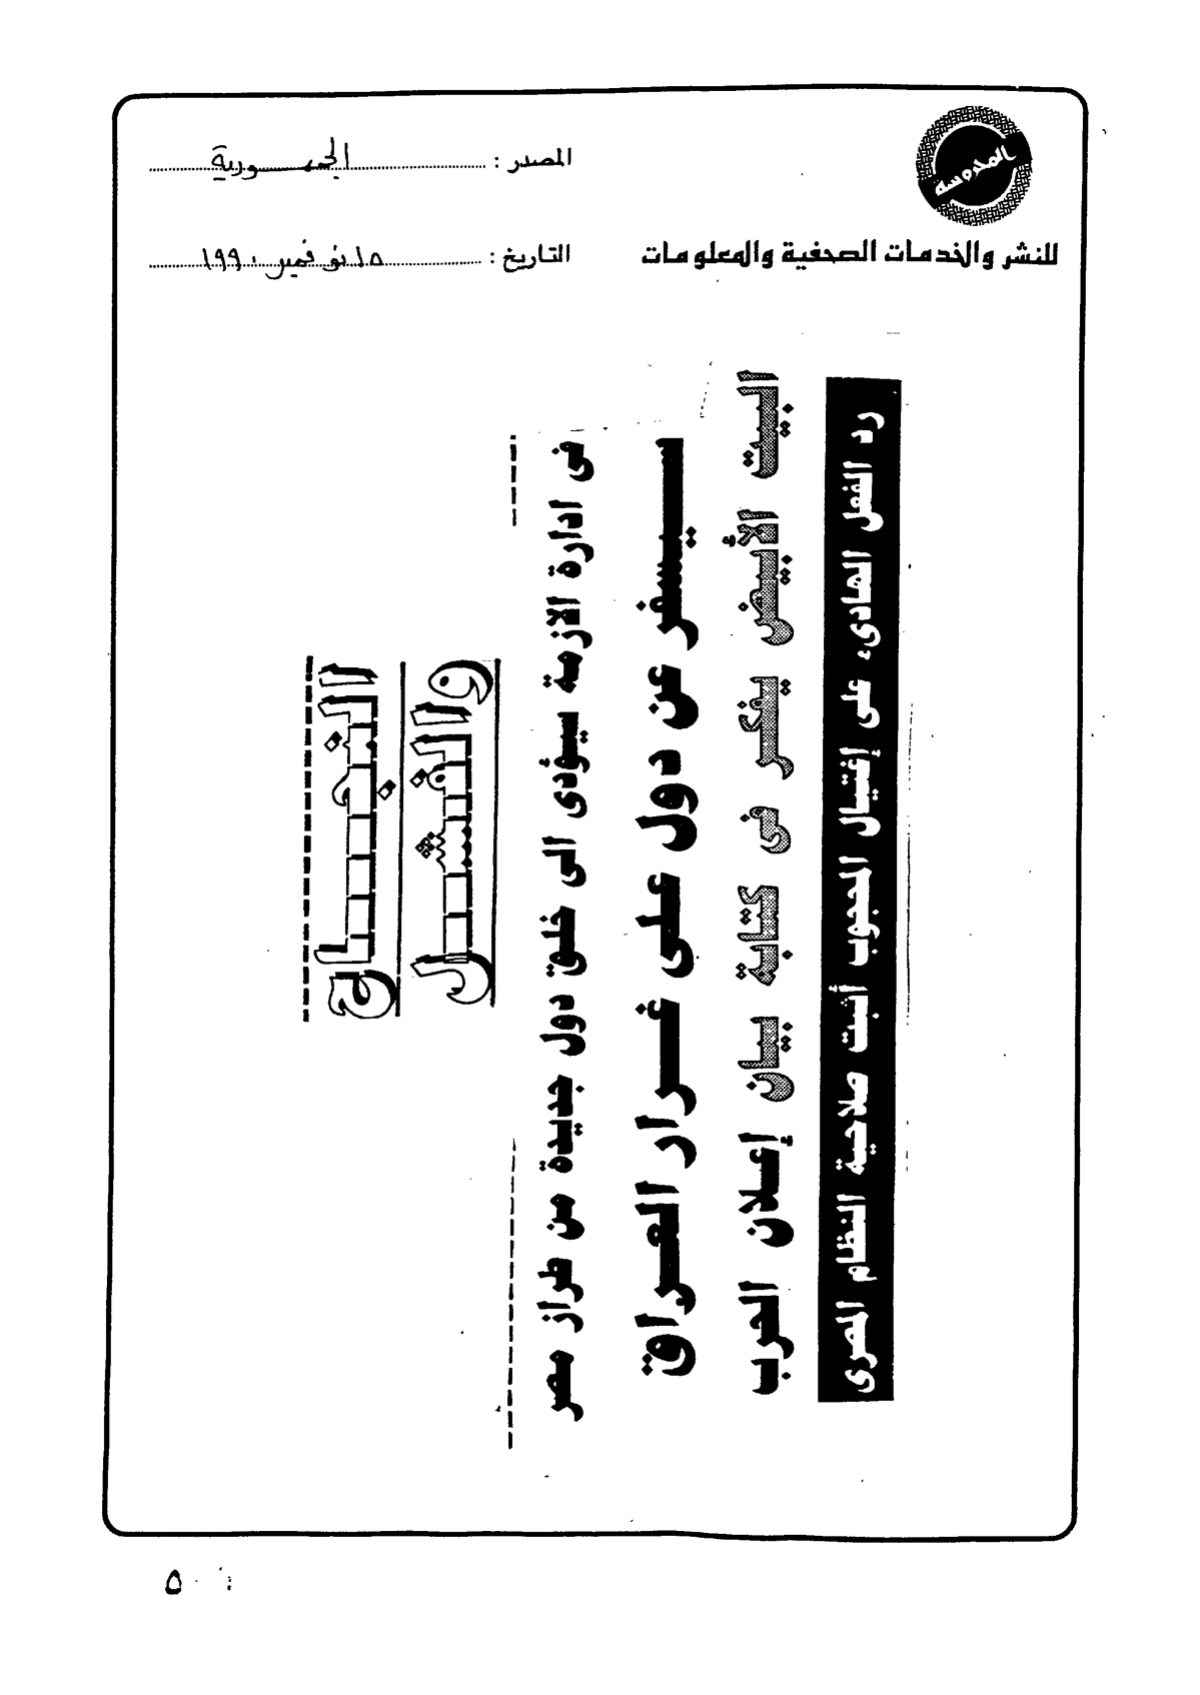 المحروسة
المصدر : الجمهورية
للنشر والخدمات الصحفية والمعلومات
التاريخ : ١٥ نوفمبر ١٩٩٠
النجاح
والفشل
فى ادارة الازمة سيؤدى الى خلق دول جديدة من طراز مصر
سيسفر عن دول على غرار العراق
البيت الأبيض يفكر فى كتابة بيان إعلان الحرب
رد الفعل الهادىء على إغتيال المحجوب أثبت صلاحية النظام المصرى
٥